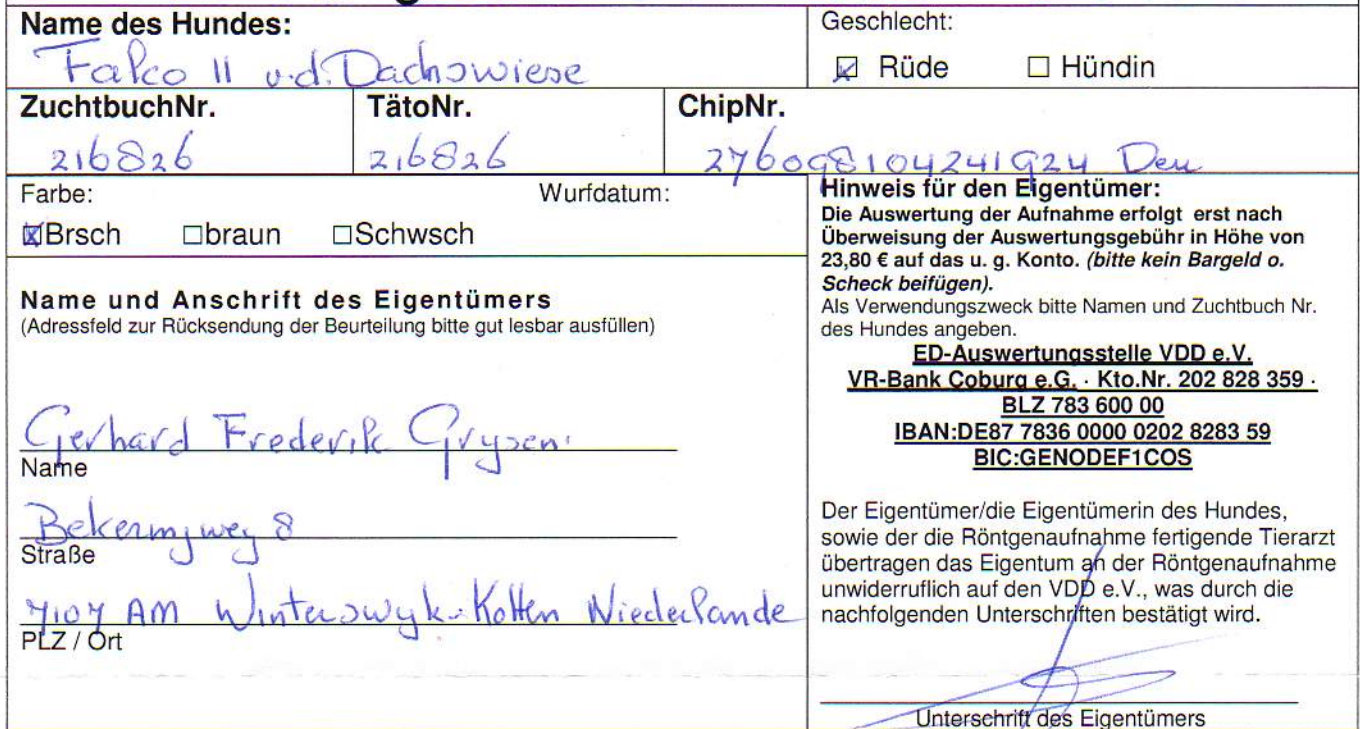 Name des Hundes:
Falco II v.d. Dachswiese
Geschlecht:
☒ Rüde ☐ Hündin
ZuchtbuchNr.
216826
TätoNr.
216826
ChipNr.
276098104241924
Farbe:
Wurfdatum:
☒Brsch ☐braun ☐Schwsch
Name und Anschrift des Eigentümers
(Adressfeld zur Rücksendung der Beurteilung bitte gut lesbar ausfüllen)
Gerhard Frederik
Name
8
Straße
7107 AM Winterswyk-Kotten Niederlande
PLZ / Ort
Hinweis für den Eigentümer:
Die Auswertung der Aufnahme erfolgt erst nach
Überweisung der Auswertungsgebühr in Höhe von
23,80 € auf das u. g. Konto. (bitte kein Bargeld o.
Scheck beifügen).
Als Verwendungszweck bitte Namen und Zuchtbuch Nr.
des Hundes angeben.
ED-Auswertungsstelle VDD e.V.
VR-Bank Coburg e.G. · Kto.Nr. 202 828 359 ·
BLZ 783 600 00
IBAN:DE87 7836 0000 0202 8283 59
BIC:GENODEF1COS
Der Eigentümer/die Eigentümerin des Hundes,
sowie der die Röntgenaufnahme fertigende Tierarzt
übertragen das Eigentum an der Röntgenaufnahme
unwiderruflich auf den VDD e.V., was durch die
nachfolgenden Unterschriften bestätigt wird.
Unterschrift des Eigentümers